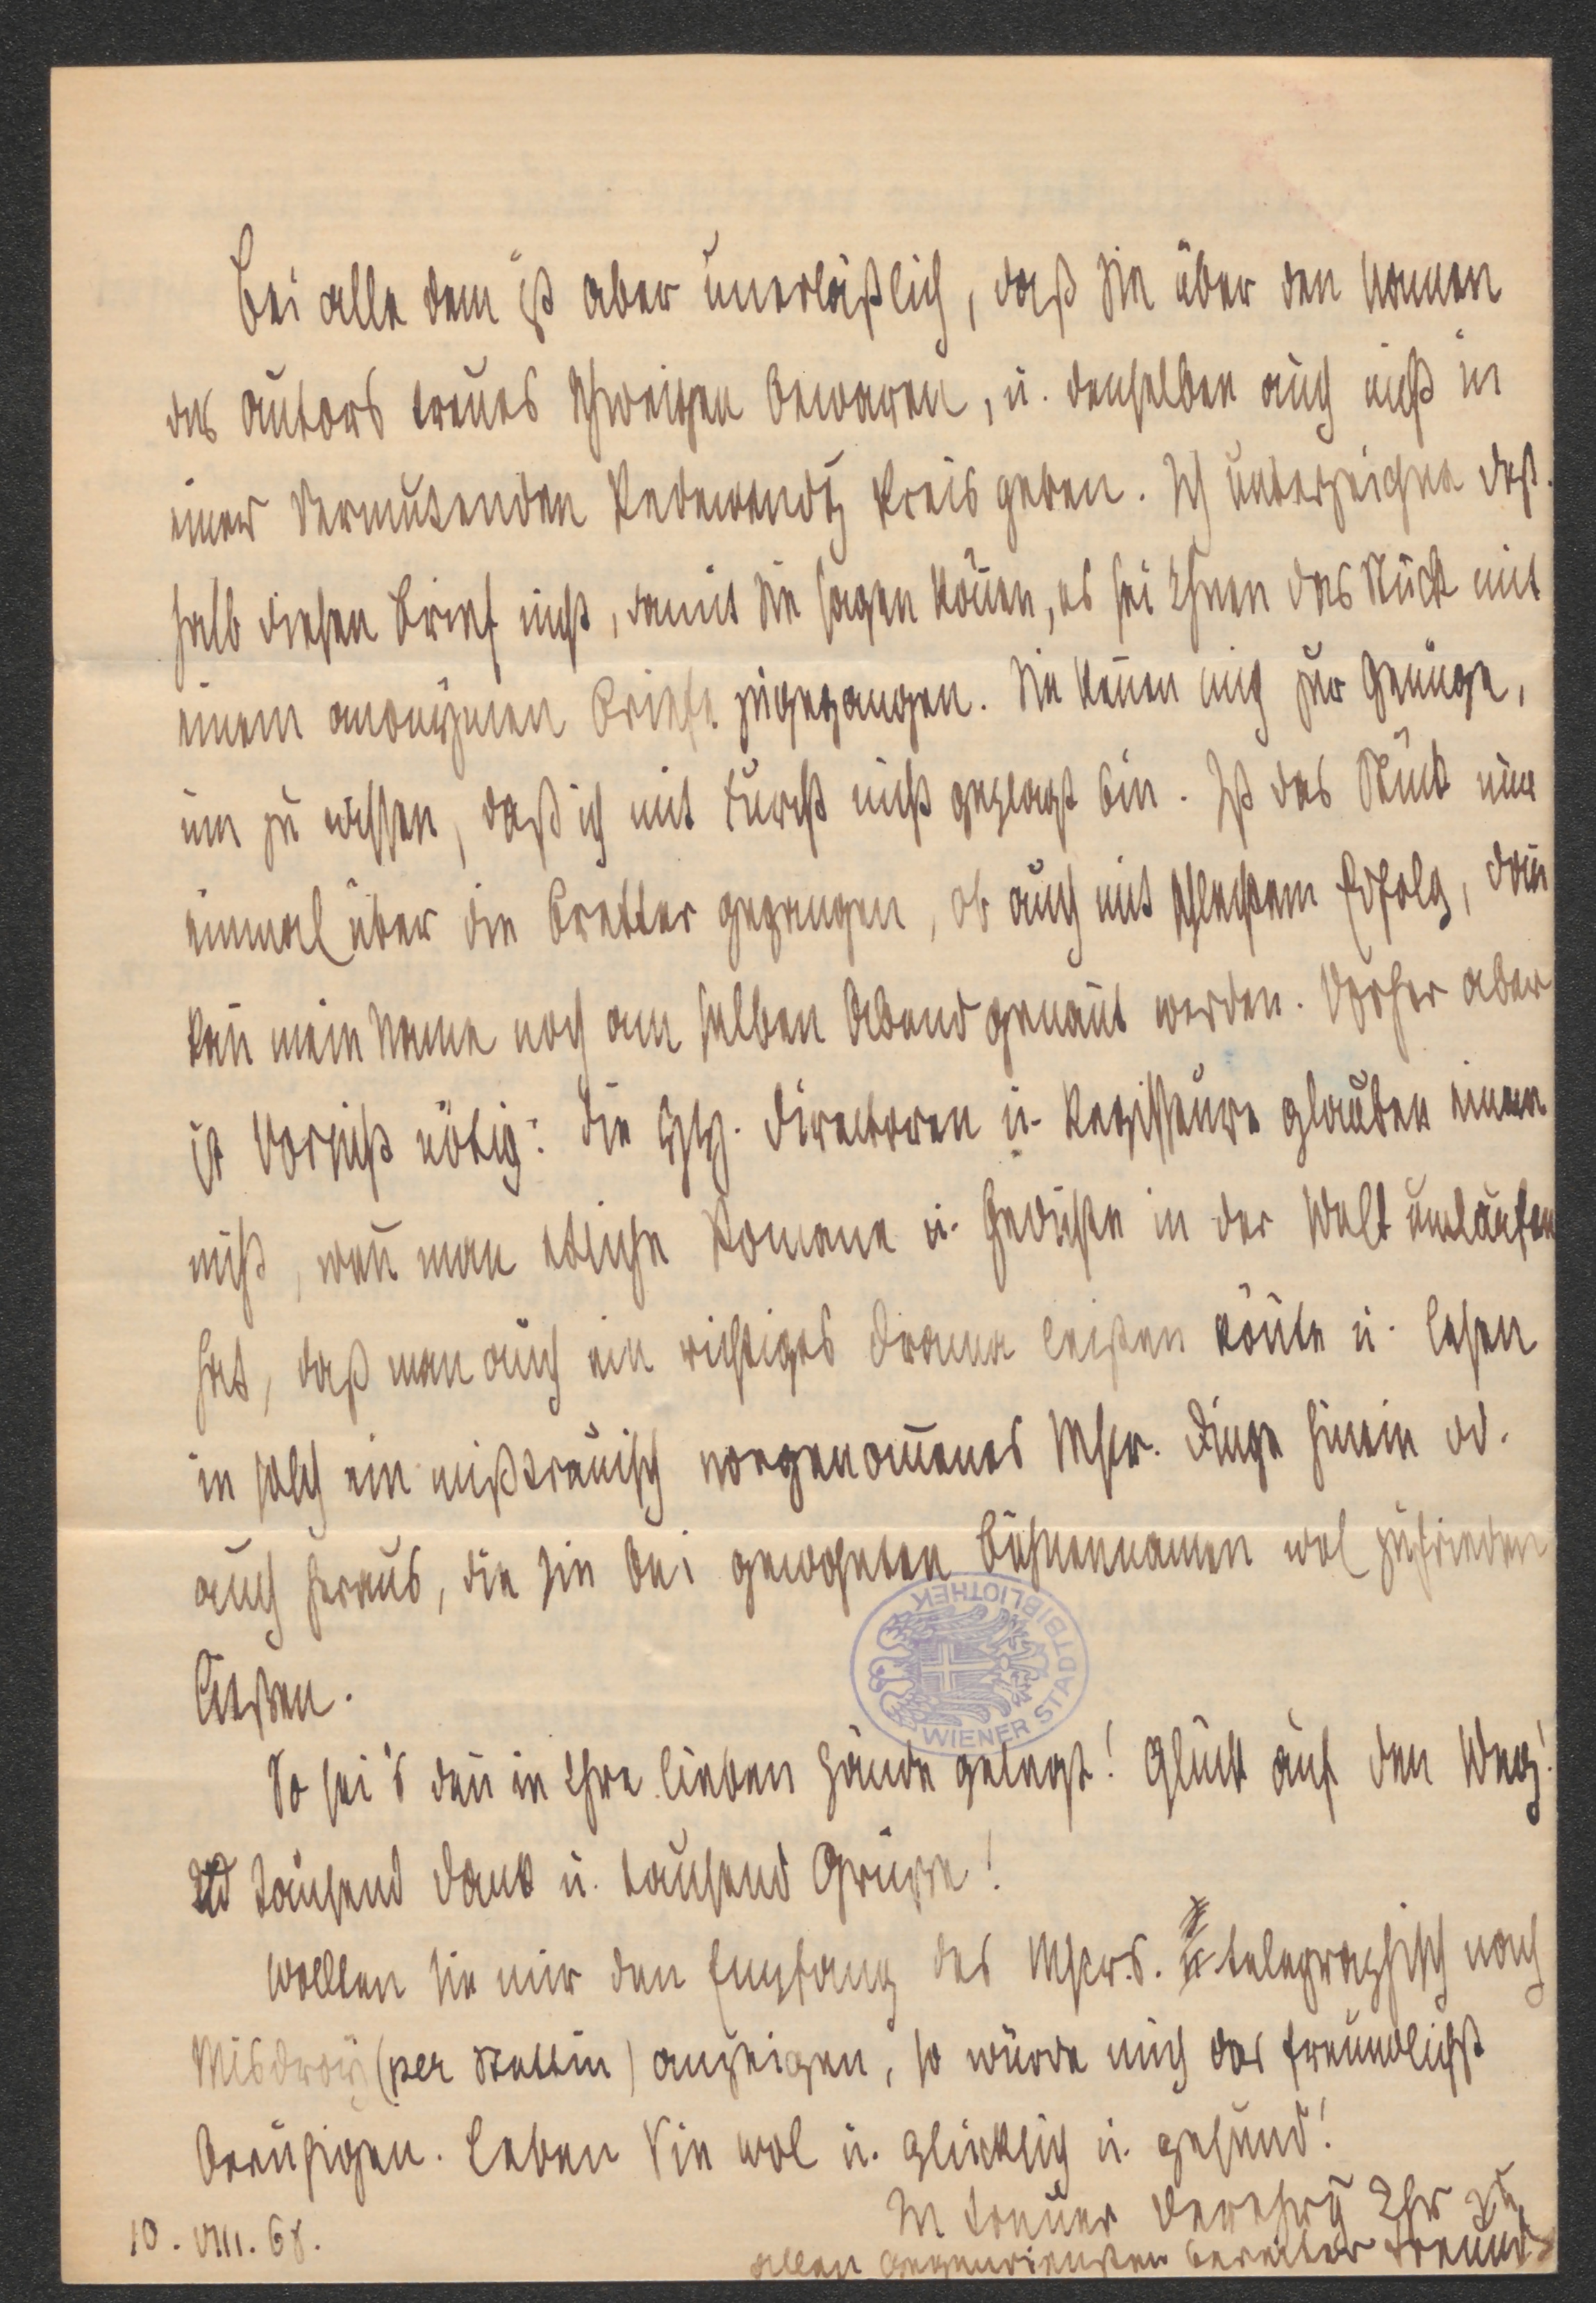 Bei alle dem ist aber unerläßlich, daß Sie über den Namen
des Autors treues Schweigen bewaren, u. denselben auch nicht in
einer vermutenden Redewendg preis geben. Ich unterzeichne deß-
halb diesen Brief nicht, damit Sie sagen könen, es sei Ihnen das Stück mit
einem anonymen Briefe zugegangen. Sie kenen mich zur Genüge,
um zu wissen, daß ich mit Furcht nicht geplagt bin. Ist das Stück nur
einmal über die Bretter gegangen, ob auch mit schlechtem Erfolg, dan
kan mein Name noch am selben Abend genant werden. Vorher aber
ist Vorsicht nötig: die Directoren u. Regisseure glauben einem
nicht, wen man etliche Romane u. Gedichte in der Welt umlaufen
hat, daß man auch ein richtiges Drama leisten könte u. lesen
in solch ein mißtrauisch vorgenomenes Mscr. Dinge hinein od.
auch heraus, die sie bei gewohnten Bühnennamen wol zufrieden
ließen.
So sei's den in Ihre lieben Hände gelegt! Glück auf den Weg!
Und tausend Dank u. tausend Grüsse!
Wollten Sie mir den Empfang des Mscrs. telegraphisch nach
Misdroy (per Stettin) anzeigen, so würde mich das freundlichst
beruhigen. Leben Sie wol u. glücklich u. gesund!
In treuer Verehrg Ihr zu
allen Gegendiensten bereiter Freund
10. VIII. 68.
WIENER STADTBIBLIOTHEK